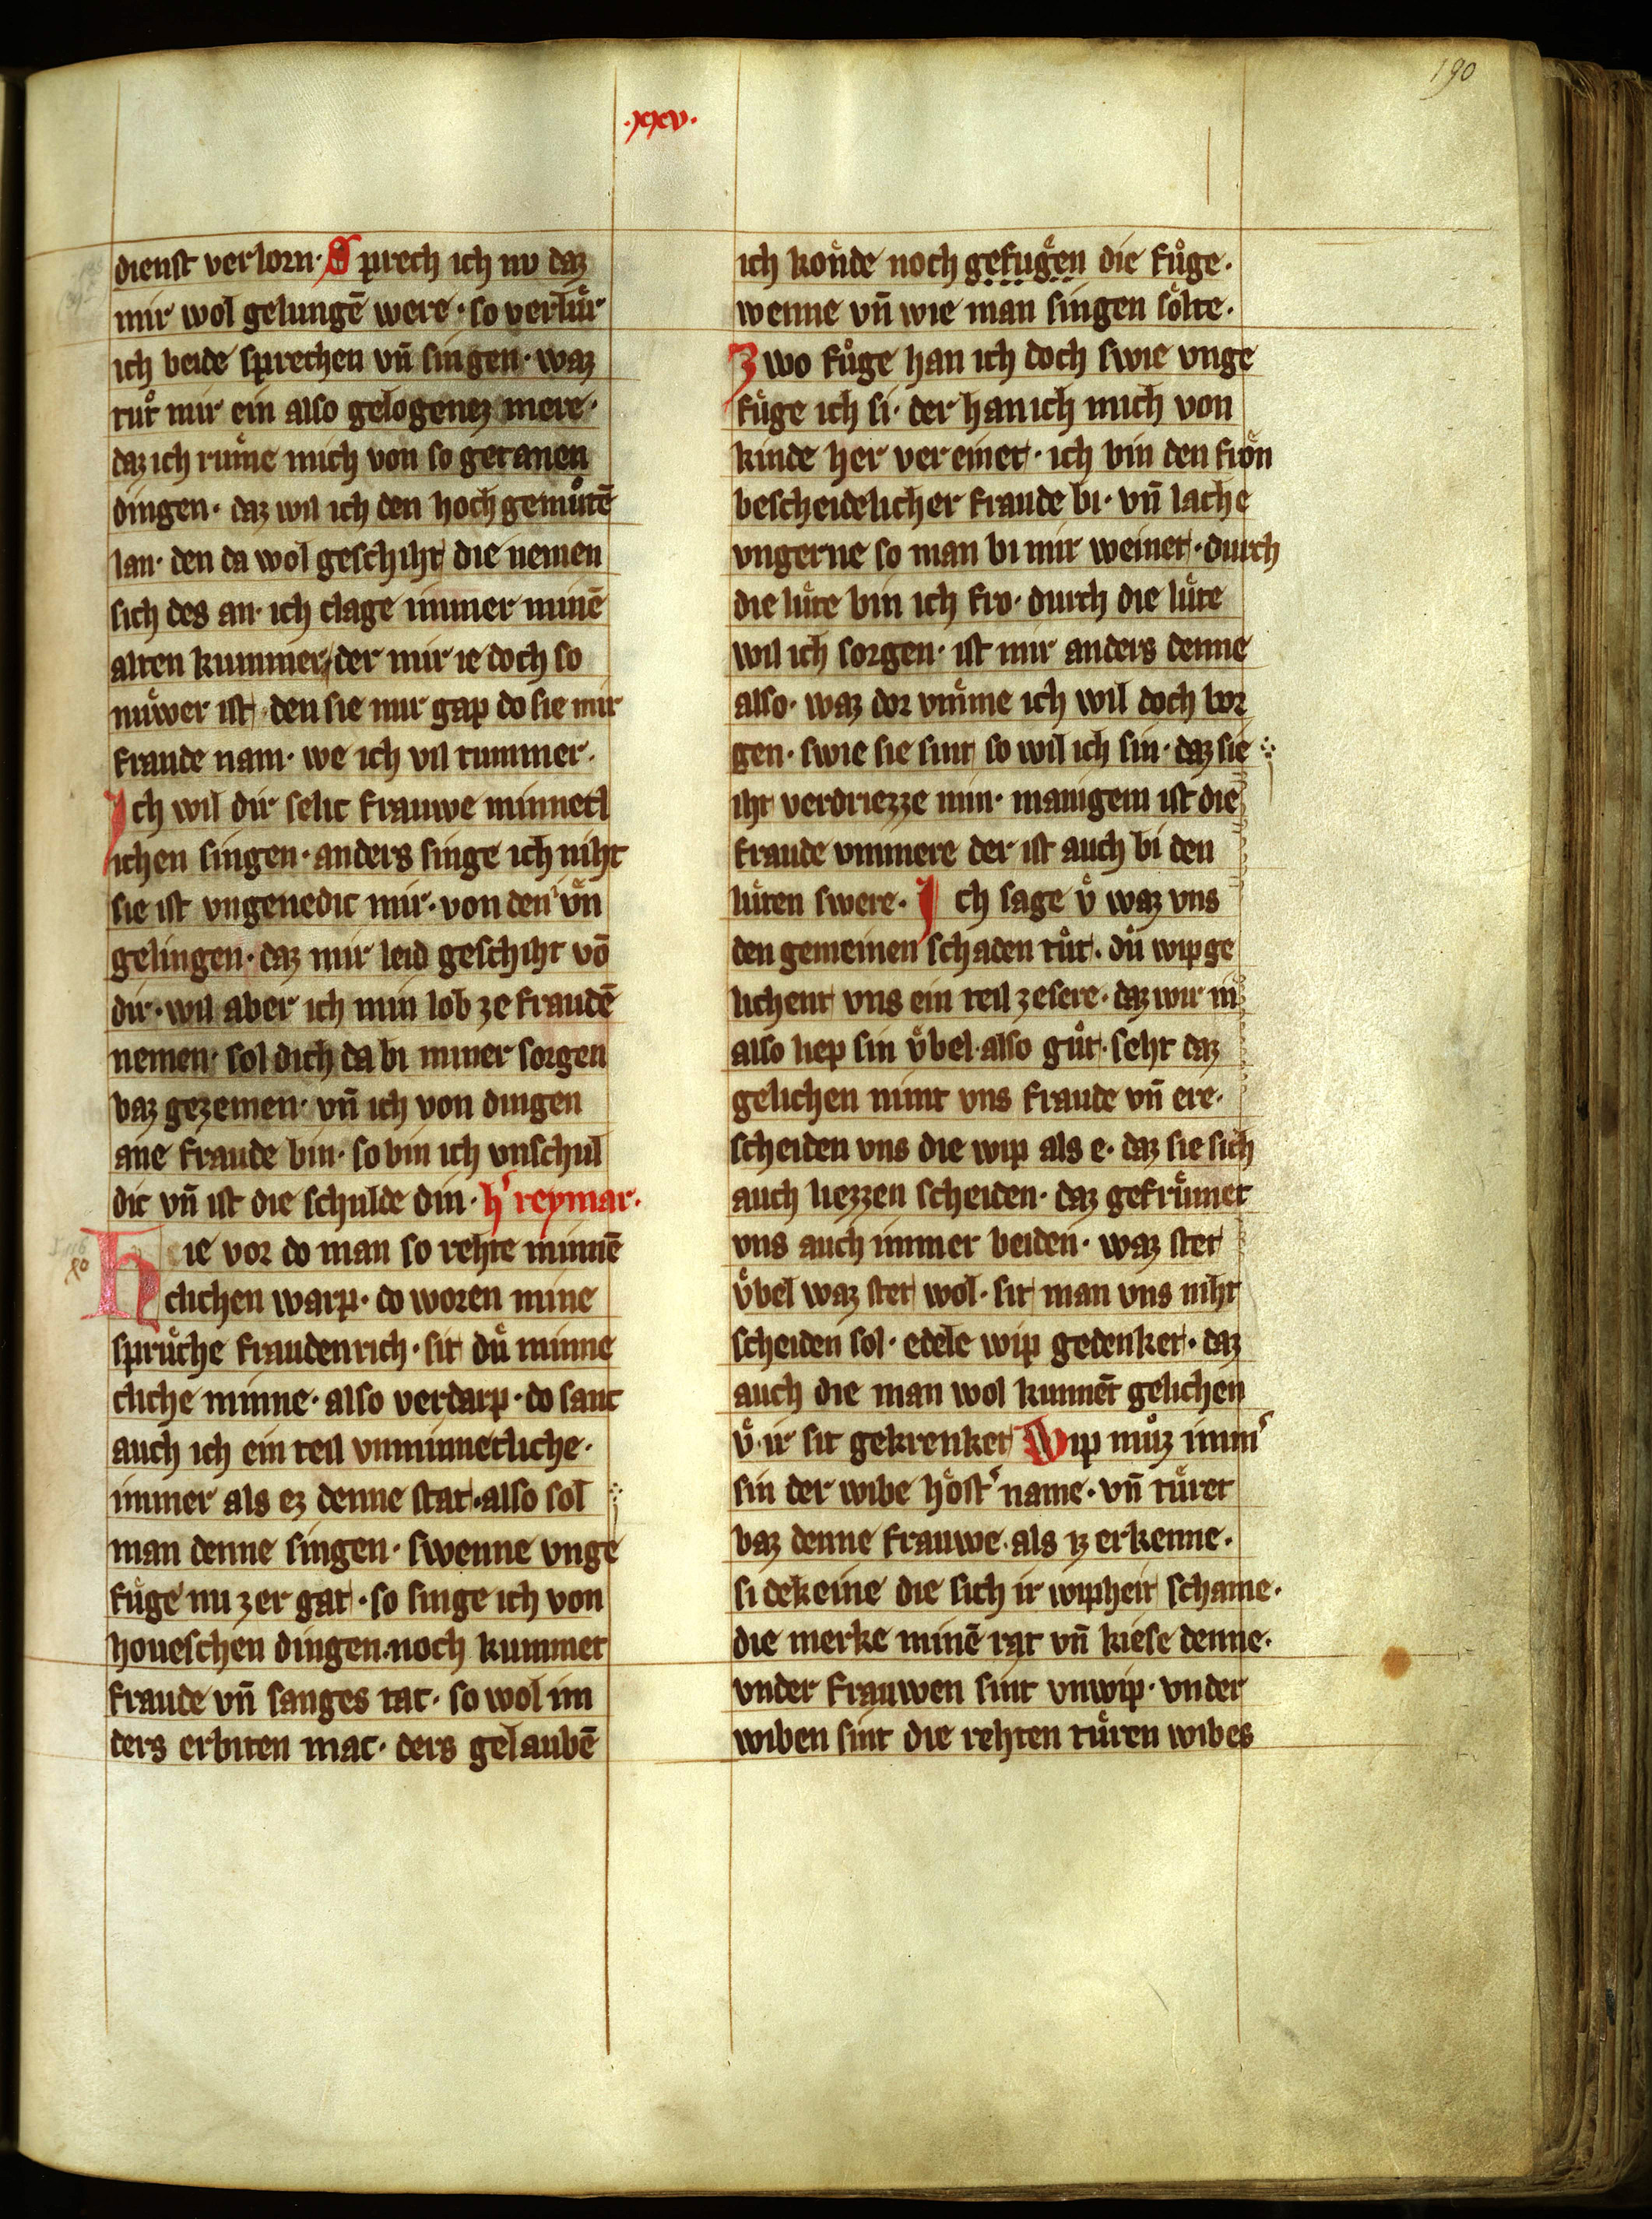 190
.xxxv.
dienst verlorn· Sprech ich nv daz
mir wol gelungē were · so verluͤr
ich beide sprechen vn̄ singen · waz
tuͦt mir ein also gelogenez mere·
daz ich ruͤme mich von so getanen
dingen· daz wil ich den hoch gemuͦtē
lan· den da wol geschiht die nemen
sich des an· ich clage immer minē
alten kummer der mir ie doch so
nuͤwer ist · den sie mir gap do sie mir
fraude nam· we ich vil tummer·
Ich wil dir selic frauwe minnecl
ichen singen · anders singe ich niht
sie ist vngenedic mir· von den vͤn
gelingen· daz mir leid geschiht vō
dir· wil aber ich min lob ze fraudē
nemen· sol dich da bi miner sorgen
baz gezemen· vn̄ ich von dingen
ane fraude bin· so bin ich vnschul
dic vn̄ ist die schulde din · h' reymar·
Hie vor do man so rehte minnē
clichen warp· do woren mine
spruͤche fraudenrich· sit duͤ minne
cliche minne· also verdarp· do sanc
auch ich ein teil vnminnecliche·
immer als ez denne stat· also sol
man denne singen· swenne vnge
fuͤge nu zer gat · so singe ich von
houeschen dingen· noch kummet
fraude vn̄ sanges tac· so wol im
ders erbiten mac· ders gelaubē
ich koͤnde noch gefugͤen die fuͦge·
wenne vn̄ wie man singen soͤlte·
Zwo fuͦge han ich doch swie vnge
fuͤge ich si· der han ich mich von
kinde her vereinet· ich bin den froͤn
bescheidelicher fraude bi· vn̄ lache
vngerne so man bi mir weinet· durch
die luͤte bin ich fro· durch die luͤte
wil ich sorgen· ist mir anders denne
also· waz dor vmͤme ich wil doch bor
gen· swie sie sint so wil ich sin· daz sie
iht verdriezze min· manigem ist die
fraude vnmere der ist auch bi den
luͤten swere· Ich sage vͤ waz vns
den gemeinen schaden tuͦt· duͤ wip ge
lichent vns ein teil zesere· daz wir in
also liep sin vͤbel· also guͦt· seht daz
gelichen nimt vns fraude vn̄ ere·
scheiden vns die wip als e· daz sie sich
auch liezzen scheiden· daz gefruͤmet
vns auch immer beiden· waz stet
vͤbel waz stet wol· sit man vns niht
scheiden sol· edele wip gedenket· daz
auch die man wol kunnēt gelichen
vͤ· ir sit gekrenket Wip muͦz imm'
sin der wibe hoͤst' name· vn̄ tuͤret
baz denne frauwe· als iz erkenne·
si dekeine die sich ir wipheit schame·
die merke minē rat vn̄ kiese denne·
vnder frauwen sint vnwip· vnder
wiben sint die rehten tuͤren wibes